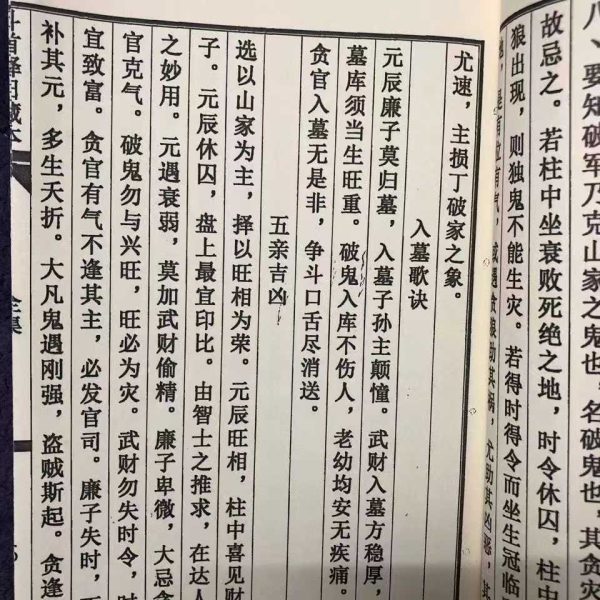 八、要知破军乃克山家之鬼也，名破鬼也，其贪灾
故忌之。若柱中坐衰败死绝之地，时令休囚，柱中
狼出现，则独鬼不能生灾。若得时得令而坐生冠临
尤速，主损丁破家之象。
入墓歌诀
元辰廉子莫归墓，入墓子孙主颠憧。武财入墓方稳厚，
墓库须当生旺重。破鬼入库不伤人，老幼均安无疾痛。
贪官入墓无是非，争斗口舌尽消送。
五亲吉凶
选以山家为主，择以旺相为荣。元辰旺相，柱中喜见财
子。元辰休囚，盘上最宜印比。由智士之推求，在达人
之妙用。元遇衰弱，莫加武财偷精。廉子卑微，大忌贪
官克气。破鬼勿与兴旺，旺必为灾。武财勿失时令，时
宜致富。贪官有气不逢其主，必发官司。廉子失时，
补其元，多生夭折。大凡鬼遇刚强，盗贼斯起。贪逢
全集